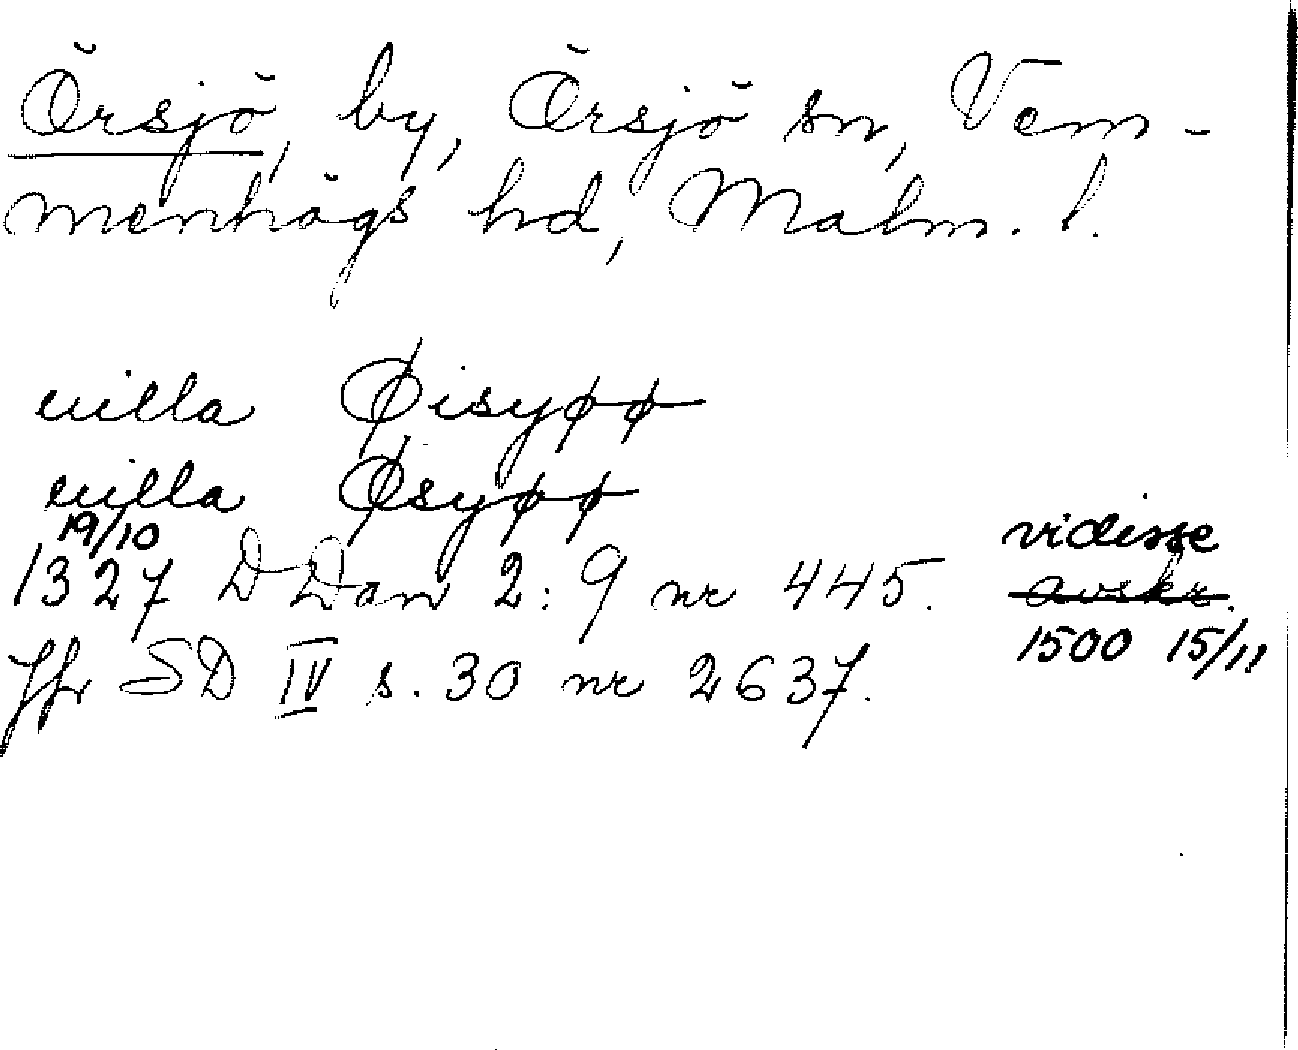 Örsjö, by, Örsjö sn, Vem-
menhögs hd, Malm. l.
uilla Øisyøø
uilla Øsyøø
19/10
1327 DDan 2:9 nr 445. vidisse avskr.
Jfr SD IV s. 30 nr 2637. 1500 15/11